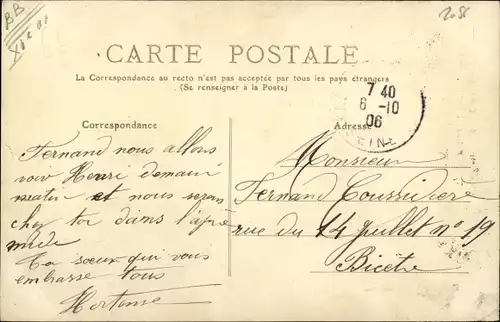 BB
2051
CARTE POSTALE
La Correspondance au recto n'est pas acceptée par tous les pays étrangers
(Se renseigner à la Poste)
7 40
6 -10
06
SEINE
Correspondance
Adresse
Fernand nous allons
voir Henri demain
matin et nous serons
chez toi dans l'après
midi
Ta soeur qui vous
embrasse tous
Hortense
Monsieur
Fernand
rue du 14 juillet n° 19
Bicêtre